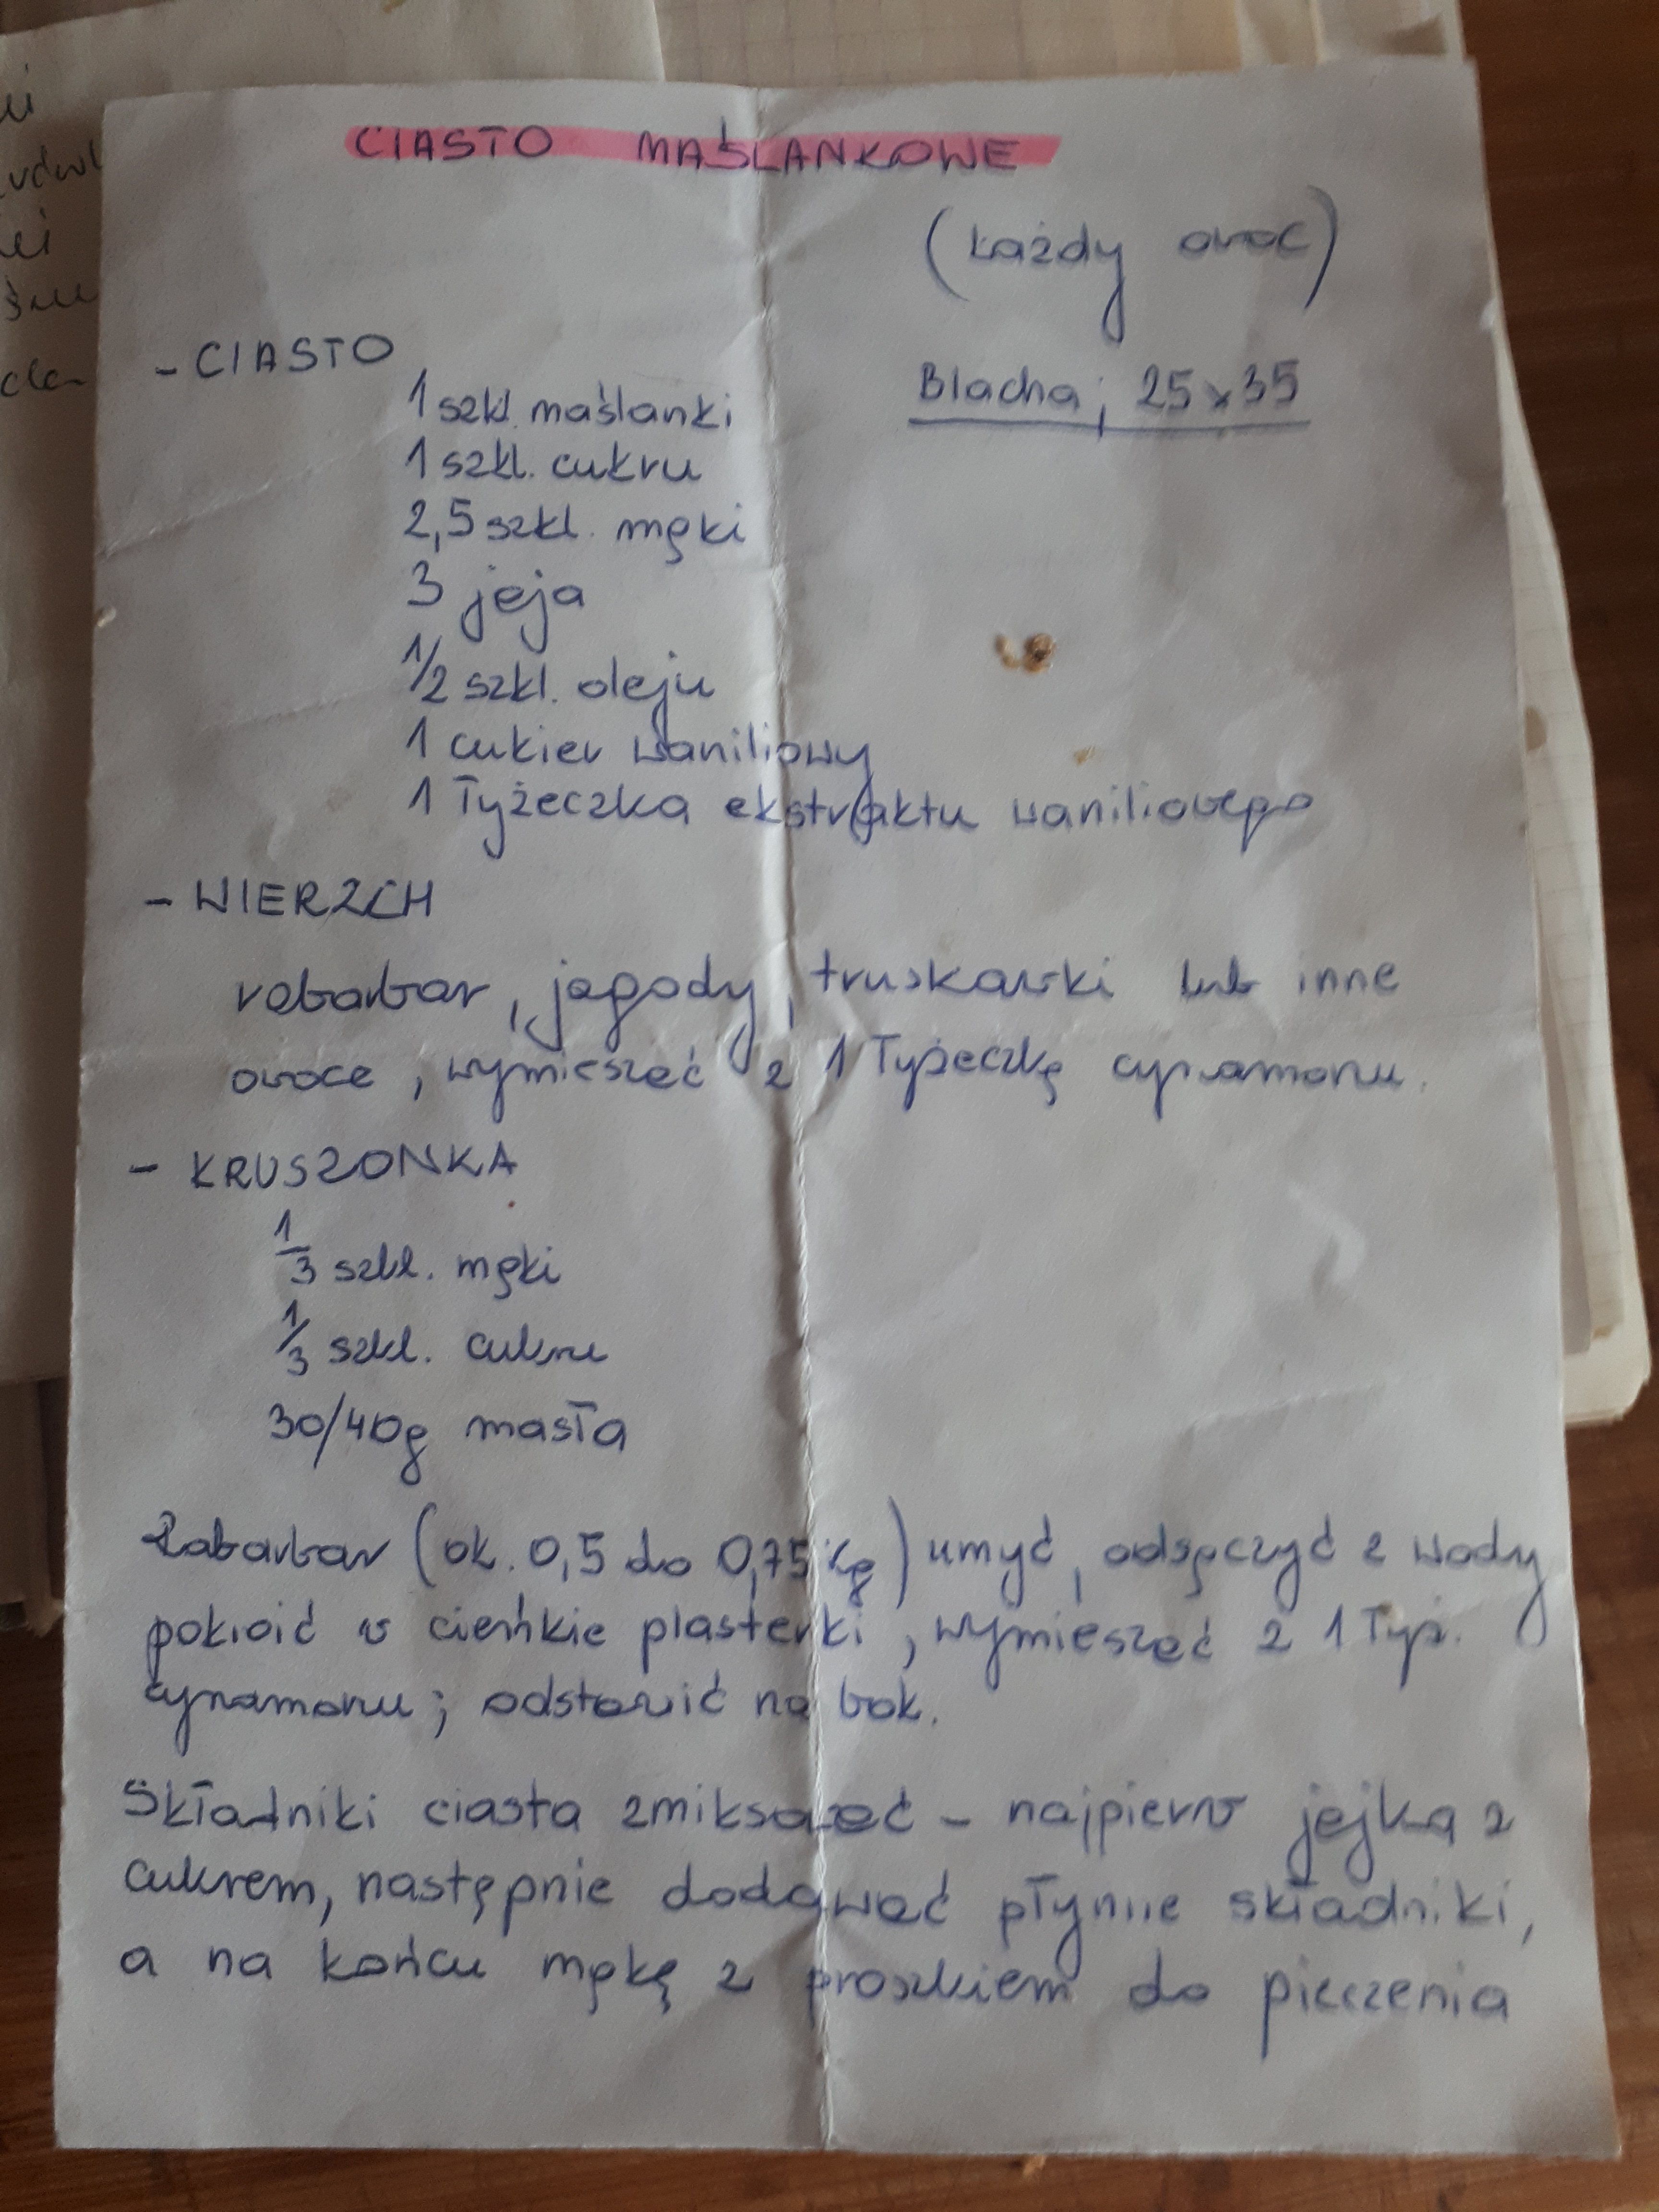 CIASTO MAŚLANKOWE
(każdy owoc)
- CIASTO
Blacha; 25x35
1 szkl. maślanki
1 szkl. cukru
2,5 szkl. mąki
3 jaja
1/2 szkl. oleju
1 cukier waniliowy
1 łyżeczka ekstraktu waniliowego
- WIERZCH
rabarbar, jagody, truskawki lub inne
owoce, wymieszać z 1 łyżeczką cynamonu.
- KRUSZONKA
1/3 szkl. mąki
1/3 szkl. cukru
30/40g masła
Rabarbar (ok. 0,5 do 0,75 kg) umyć, odsączyć z wody
pokroić w cieńkie plasterki, wymieszać z 1 łyż.
cynamonu; odstawić na bok.
Składniki ciasta zmiksować - najpierw jajka z
cukrem, następnie dodawać płynne składniki,
a na końcu mąkę z proszkiem do pieczenia